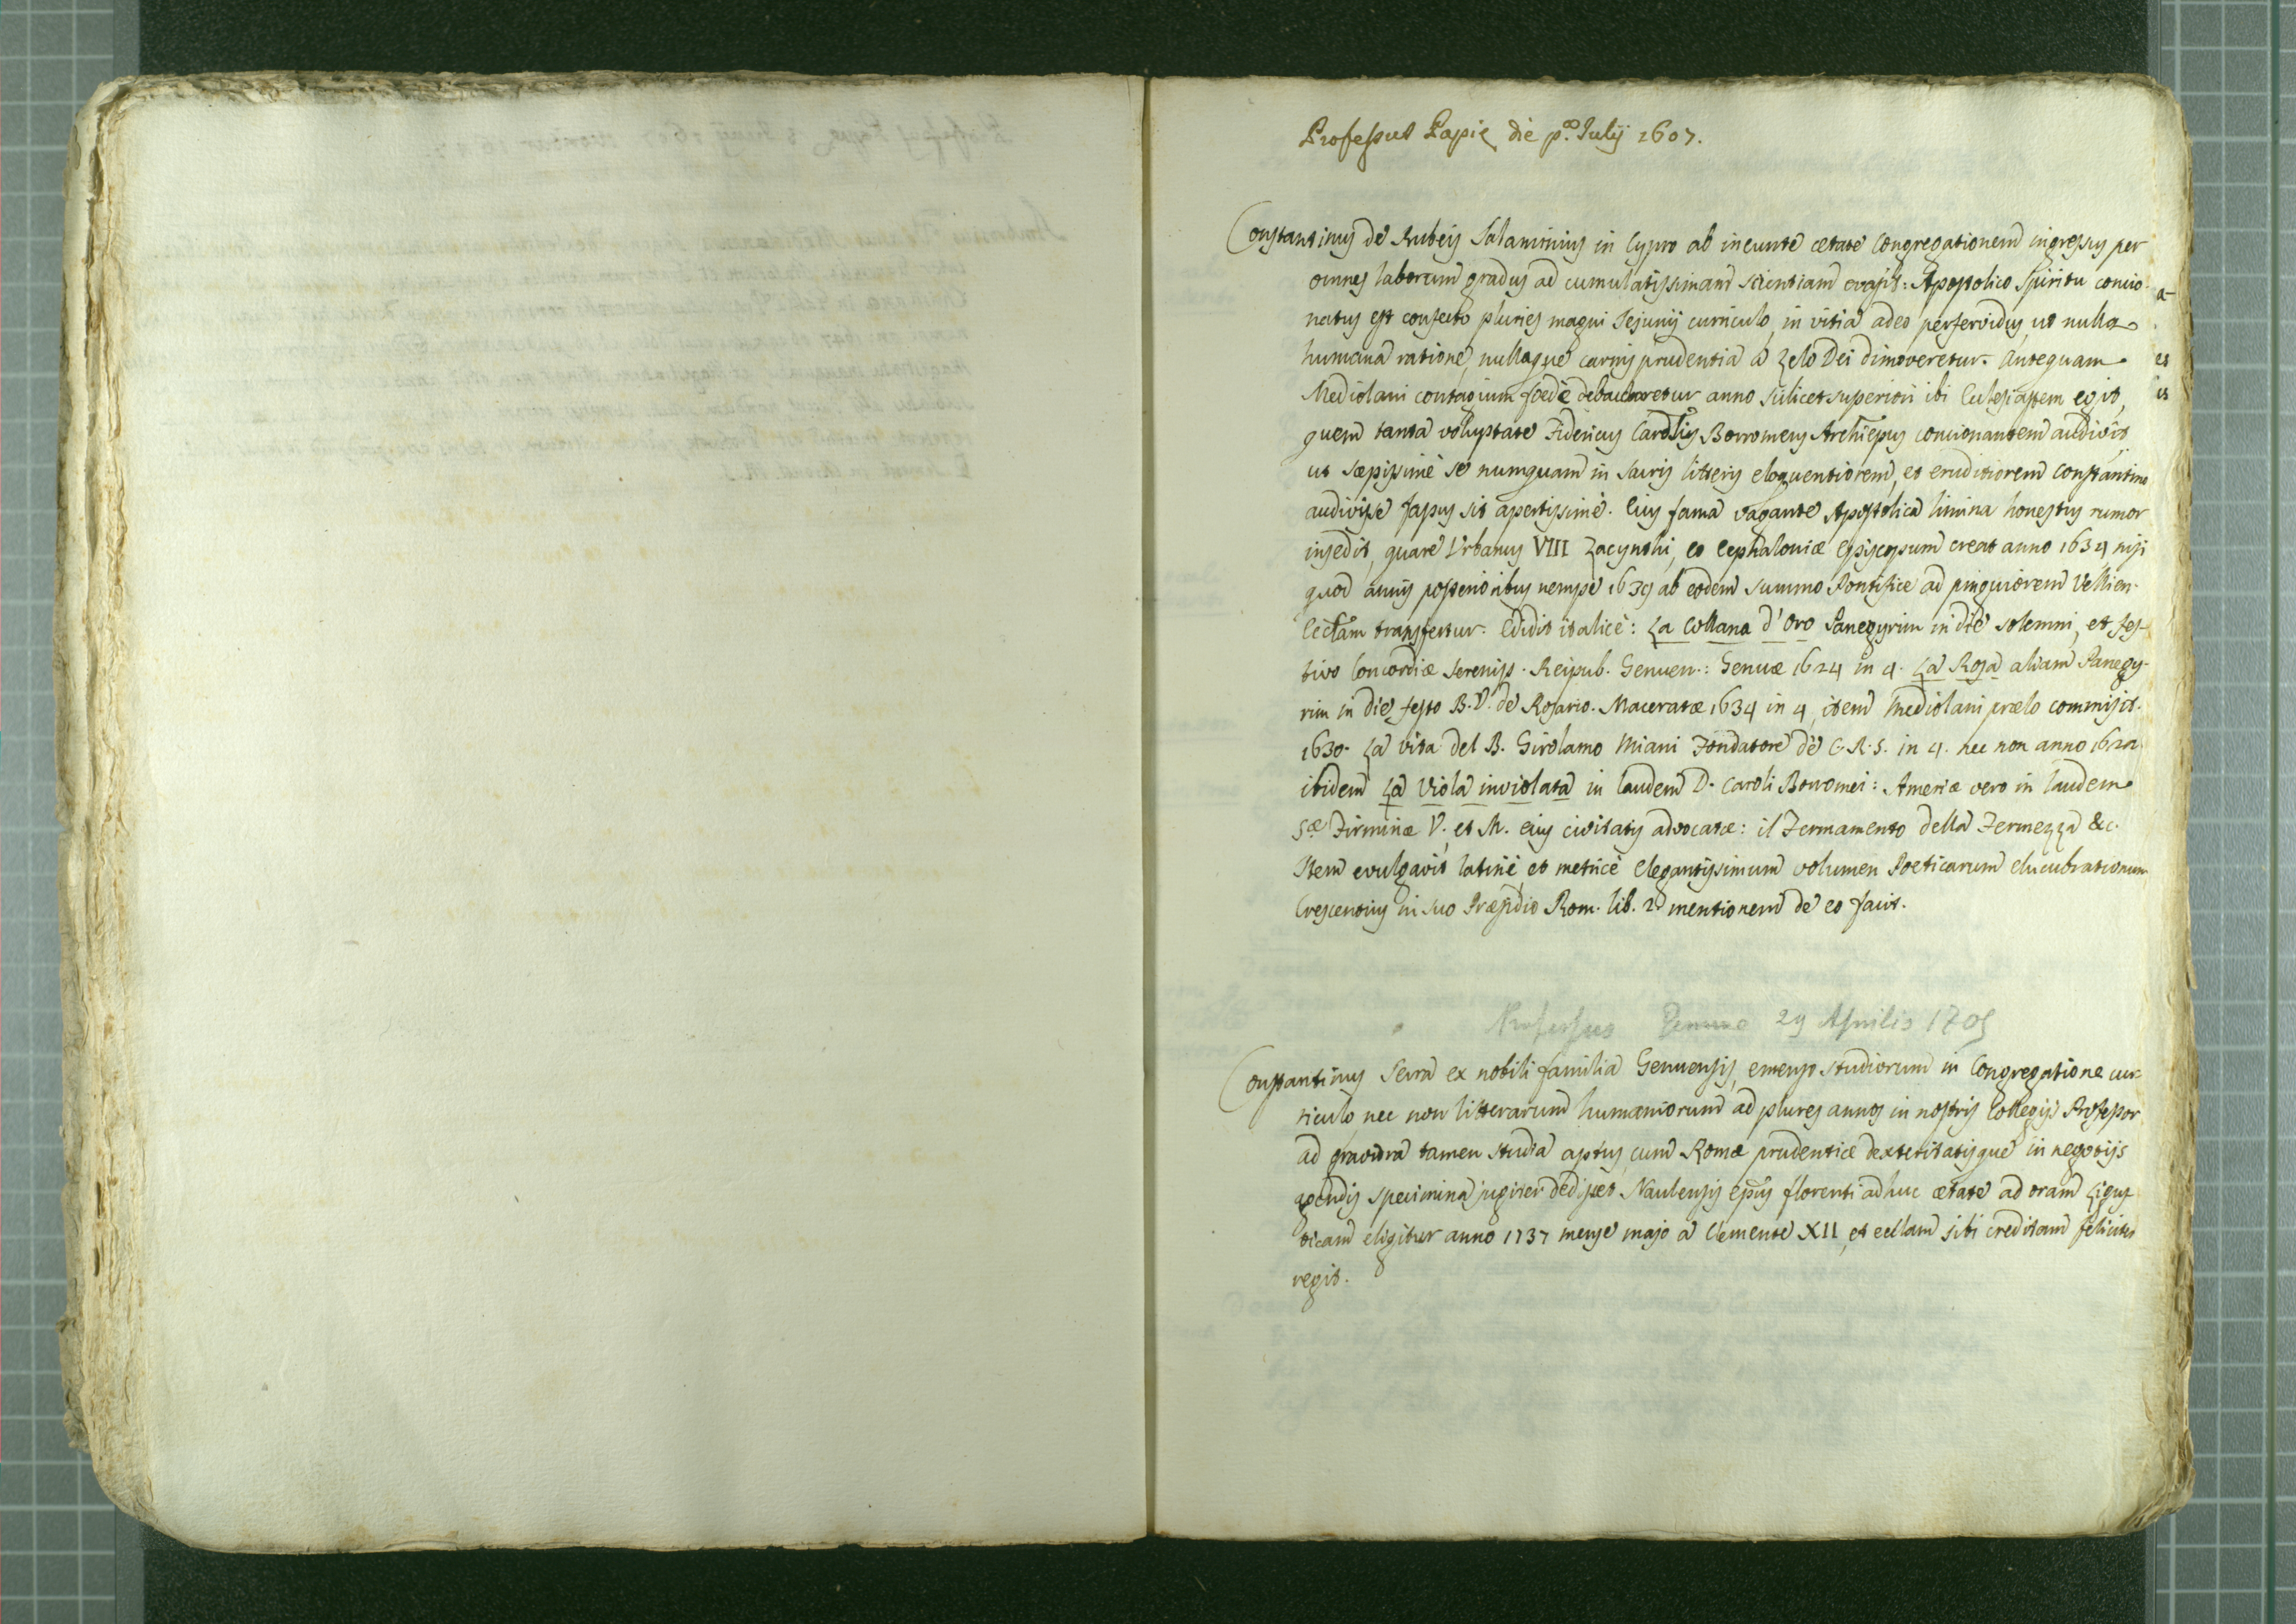 Professus Papię die p.ᵃ Julij 1607.
Constantinus de Rubeis Salaminius in Cypro ab ineunte ætate Congregationem ingressus per
omnes laborum gradus ad cumulatissimam scientiam evasit: Apostolico Spiritu concio-
natus est confecto pluries magni Jejunij curriculo, in vitia adeo perfervidus, ut nulla
humana ratione, nullaque carnis prudentia à zelo Dei dimoveretur. Antequam
Mediolani contagium foedè debaccharetur anno scilicet superiori ibi Eclesiastem egit,
quem tanta voluptate Fidericus Cardlis Borromeus Archiepus concionantem audivit
ut sæpissimè se numquam in sacris litteris eloquentiorem, et eruditiorem Constantino
audivisse fassus sit apertissimè. Eius fama vagante Apostolica limina honestus rumor
insedit, quare Urbanus VIII Zacynthi, et Cephaloniæ Episcopum creat anno 1634 nisi
quod annis posterioribus nempe 1639 ab eodem summo Pontifice ad pinguiorem Vellien.
Ecclam transfertur. Edidit italicè: La Collana d'Oro Panegyrim in die solemni, et fes-
tivo Concordiæ Sereniss. Reipub. Genuen.: Genuæ 1624 in 4. La Rosa aliam Panegy-
rim in die festo B.V. de Rosario. Maceratæ 1634 in 4, item Mediolani prælo commisit.
1630. La vita del B. Girolamo Miani Fondatore de C.R.S. in 4. nec non anno
ibidem La Viola inviolata in laudem D. Caroli Borromei: Ameriæ vero in laudem
Sæ Firminæ V. et M. eius civitatis advocatæ: il Fermamento della Fermezza &c.
Item evulgavit latinè, et metricè elegantissimum volumen Poeticarum elucubrationum
Crescentius in suo Præsidio Rom. lib. 2 mentionem de eo facit.
Professus Genuæ 29 Aprilis 1705
Constantinus Serra ex nobili familia Genuensis, emenso studiorum in Congregatione cur-
riculo nec non litterarum humaniorum ad plures annos in nostris Collegijs Professor
ad graviora tamen studia aptus, cum Romæ prudentiæ dexteritatisque in negotijs
agendis specimina jugiter dedisset Naulensis Epus florenti adhuc ætate ad oram Ligus-
ticam eligitur anno 1737 mense majo à Clemente XII, et ecllam sibi creditam feliciter
regit.